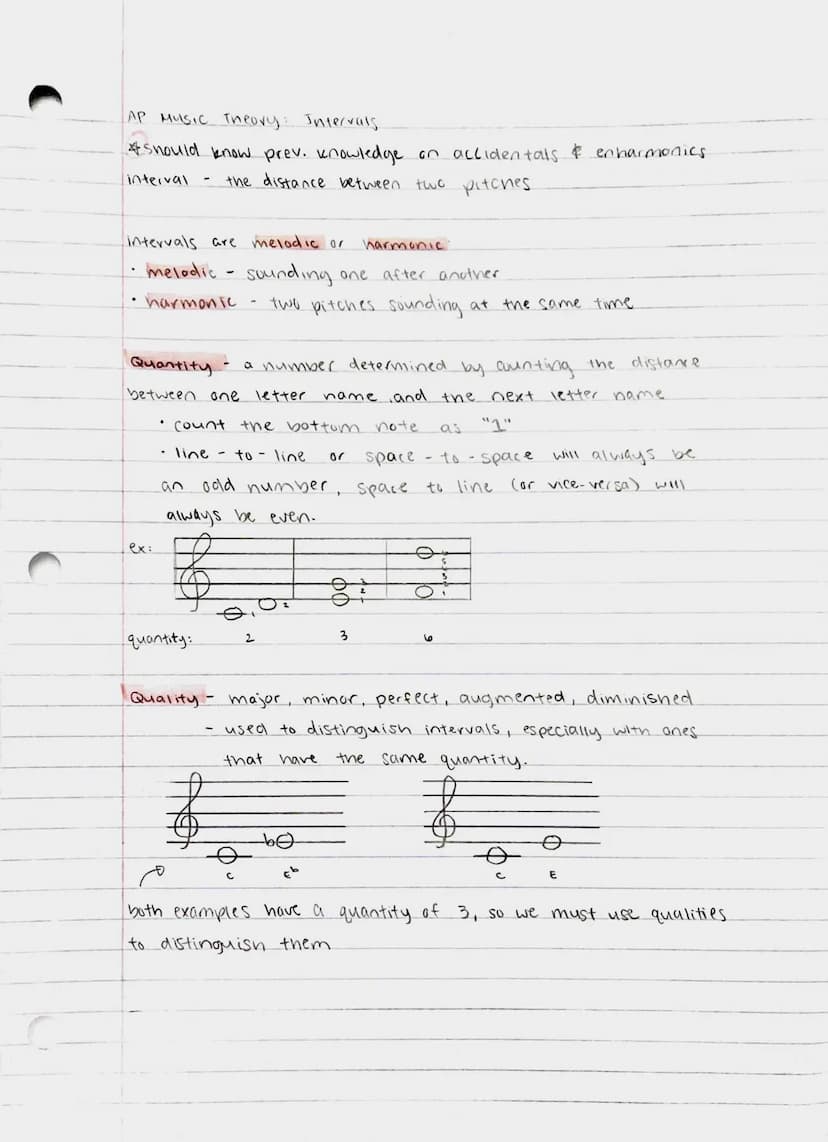 AP Music Theory: Intervals
*should know prev. knowledge on accidentals & enharmonics
interval - the distance between two pitches
intervals are melodic or harmonic
· melodic - sounding one after another
· harmonic - two pitches sounding at the same time
Quantity - a number determined by counting the distance
between one letter name and the next letter name
· count the bottom note as "1"
· line-to-line or space-to-space will always be
an odd number, space to line (or vice-versa) will
always be even.
ex:
1 2 3 2 1 6 5 4 3 2 1
quantity: 2 3 6
Quality - major, minor, perfect, augmented, diminished
- used to distinguish intervals, especially with ones
that have the same quantity.
b
C Eb C E
both examples have a quantity of 3, so we must use qualities
to distinguish them